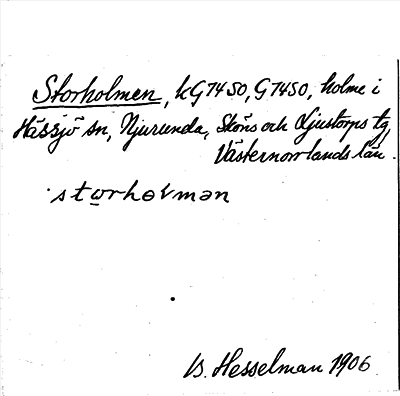 Storholmen, kG7450, G7450, holme i
Hässjö sn, Njurunda, Sköns och Ljustorps tg,
Västernorrlands län.
storholmən
B. Hesselman 1906